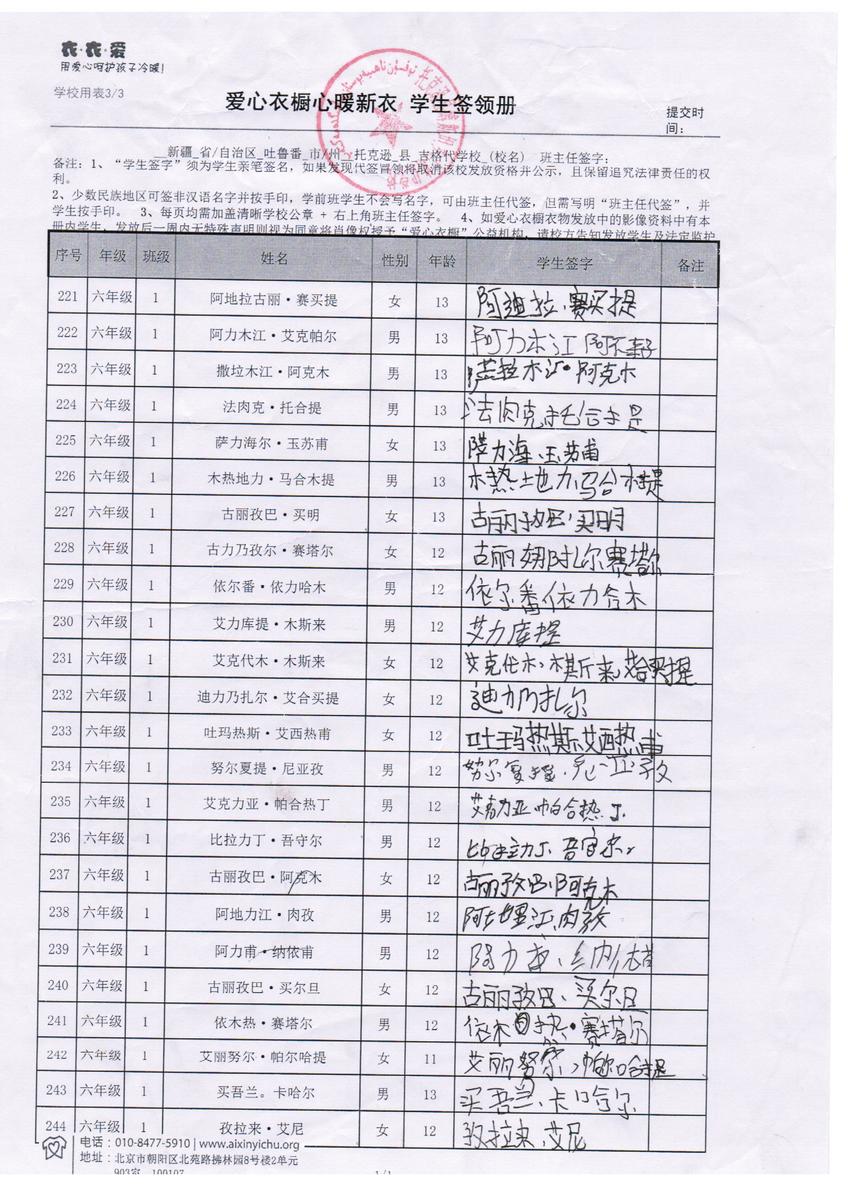 衣·衣·爱
用爱心呵护孩子冷暖!
学校用表3/3
爱心衣橱心暖新衣 学生签领册
提交时间:
新疆_省/自治区_吐鲁番_市/州_托克逊_县_吉格代学校_(校名) 班主任签字:
备注:1、“学生签字”须为学生亲笔签名,如果发现代签冒领将取消该校发放资格并公示,且保留追究法律责任的权
利。
2、少数民族地区可签非汉语名字并按手印,学前班学生不会写名字,可由班主任代签,但需写明“班主任代签”,并
学生按手印。 3、每页均需加盖清晰学校公章 + 右上角班主任签字。 4、如爱心衣橱衣物发放中的影像资料中有本
册内学生,发放后一周内无特殊声明则视为同意将肖像权授予“爱心衣橱”公益机构,请校方告知发放学生及法定监护
序号 年级 班级 姓名 性别 年龄 学生签字 备注
221 六年级 1 阿地拉古丽·赛买提 女 13 阿迪拉·赛买提
222 六年级 1 阿力木江·艾克帕尔 男 13 阿力木江
223 六年级 1 撒垃木江·阿克木 男 13 拉木江·阿克木
224 六年级 1 法肉克·托合提 男 13 法肉克
225 六年级 1 萨力海尔·玉苏甫 女 13 萨力海·玉苏甫
226 六年级 1 木热地力·马合木提 男 13 木热地力马合木提
227 六年级 1 古丽孜巴·买明 女 13 古丽孜巴·买明
228 六年级 1 古力乃孜尔·赛塔尔 女 12 古丽 扎尔赛塔尔
229 六年级 1 依尔番·依力哈木 男 12 依尔番依力合木
230 六年级 1 艾力库提·木斯来 男 12 艾力库提
231 六年级 1 艾克代木·木斯来 女 12 艾克代木·木斯来
232 六年级 1 迪力乃扎尔·艾合买提 女 12 迪力乃扎尔
233 六年级 1 吐玛热斯·艾西热甫 女 12 吐玛热斯艾西热甫
234 六年级 1 努尔夏提·尼亚孜 男 12 努尔夏提·尼亚孜
235 六年级 1 艾克力亚·帕合热丁 男 12 艾克力亚帕合热丁
236 六年级 1 比拉力丁·吾守尔 男 12
237 六年级 1 古丽孜巴·阿克木 女 12 古丽孜巴·阿克木
238 六年级 1 阿地力江·肉孜 男 12 江·肉孜
239 六年级 1 阿力甫·纳依甫 男 12 阿力甫
240 六年级 1 古丽孜巴·买尔旦 女 12 古丽孜巴·买尔旦
241 六年级 1 依木热·赛塔尔 男 12 依木热·赛塔尔
242 六年级 1 艾丽努尔·帕尔哈提 女 11 艾丽努尔·帕尔哈提
243 六年级 1 买吾兰。卡哈尔 男 13 买吾兰·卡哈尔
244 六年级 1 孜拉来·艾尼 女 12 孜拉来·艾尼
电话:010-8477-5910 | www.aixinyichu.org
地址:北京市朝阳区北苑路拂林园8号楼2单元
903室 100107
1/1